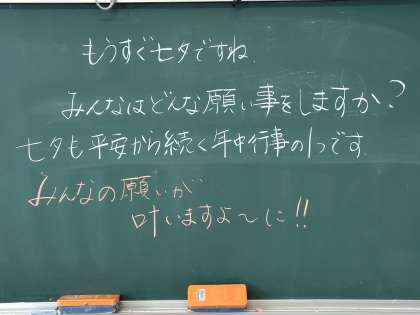 もうすぐ七夕ですね.
みんなはどんな願い事をしますか?
七夕も平安から続く年中行事の1つです.
みんなの願いが
叶いますよ〜に!!